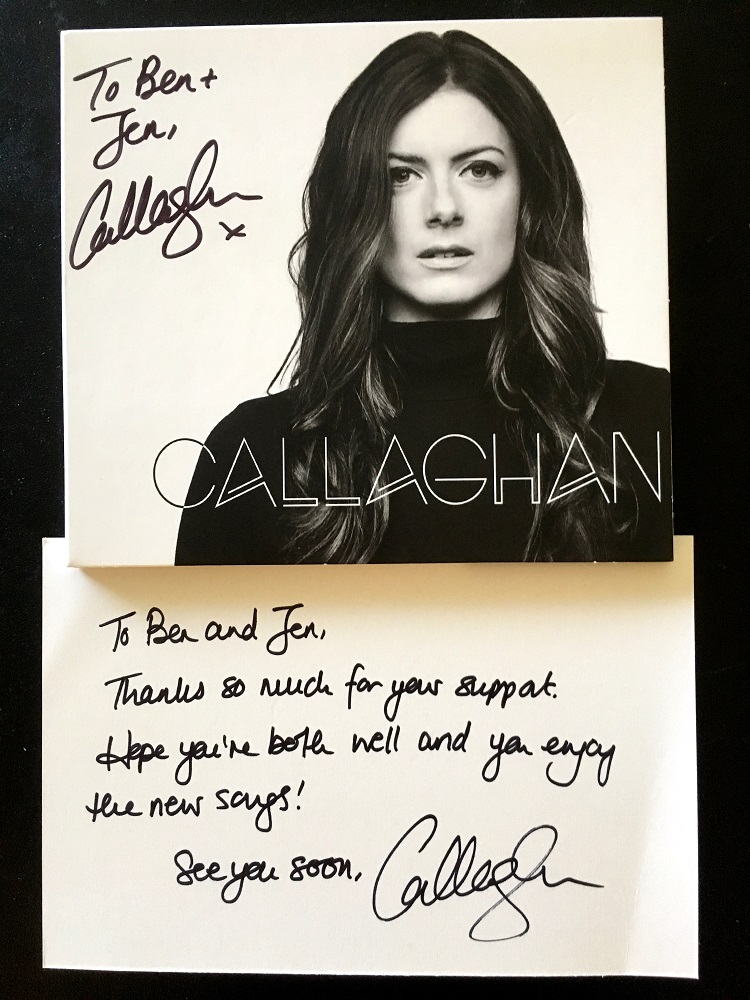 To Ben +
Jen,
Callaghan
x
CALLAGHAN
To Ben and Jen,
Thanks so much for your support.
Hope you're both well and you enjoy
the new songs!
See you soon, Callaghan